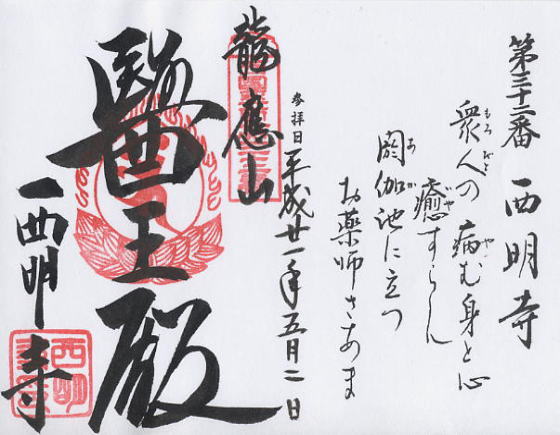 第三十二番 西明寺
衆人の 病む身と心
もろびと や
癒すらん
いや
閼伽池に立つ
あか
お薬師さあま
参拝日 平成廿一年五月二日
龍應山
醫王殿
西明寺
西明